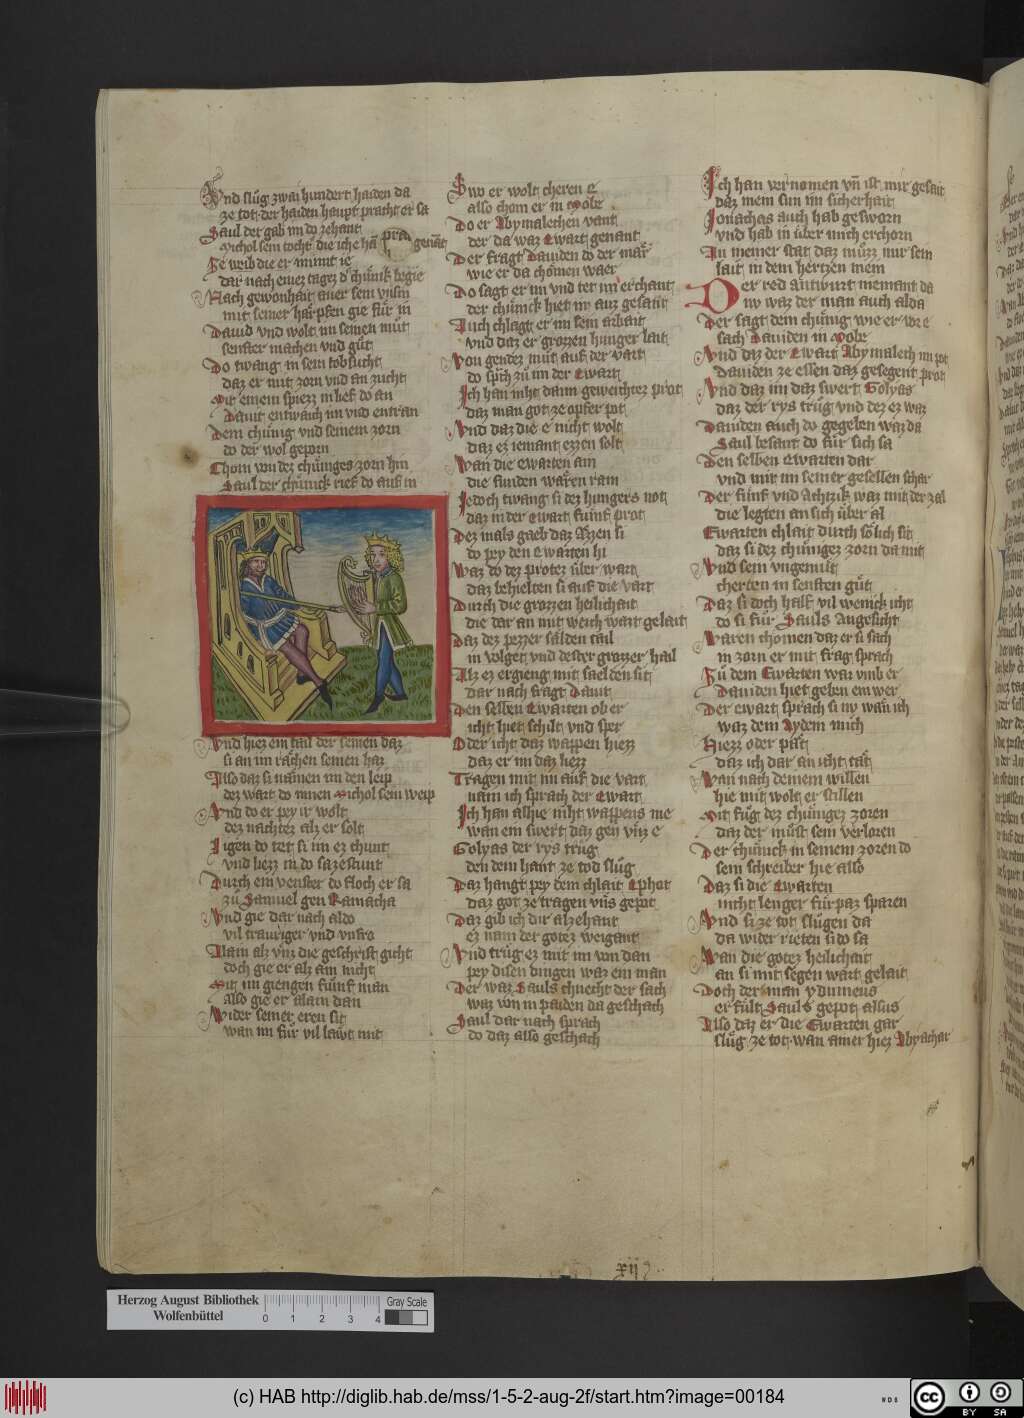 Vnd slůg zwai hundert haiden da
ze tot der haiden haupt pracht er sa
Saul der gab im do zehant
Michol sein tocht die ich e hā genāt
Ze weib die er minnt ie
dar nach eines tages d chůnik begie
Nach gewonhait auer sein vnsin
mit seiner harpfen gie fůr in
Dauid vnd wolt im seinen můt
senfter machen vnd gůt
Do twang in sein tobsucht
daz er mit zorn vnd an zucht
Mit einem spiezz in lief do an
Dauit entwaich im vnd entran
Dem chůnig vnd seinem zorn
do der wol geporn
Chom von dez chůniges zorn hin
Saul der chůnick rief do auf in
Vnd hiez ein tail der seinen daz
si an im rachen seinen haz
Also daz si namen im den leip
dez wart do innen Michol sein weip
Vnd do er pey ir wolt
dez nachtez alz er solt
Ligen do tet si im ez chunt
vnd liezz in do sazestunt
Durch ein venster do floch er sa
zů Samuel gen Ramacha
Vnd gie dar nach aldo
vil trauriger vnd vnfro
Alain alz vns die geschrift gicht
doch gie er alz ain nicht
Mit im giengen fůnf man
also gie er alain dan
Wider seinen eren sit
wan im fůr vil lawt mit
Swo er wolt cheren e
also chom er in Nobe
Do er Abymalechen vant
der da waz Ewart genant
Der fragt Dauiden do der mär
wie er da chomen waer
Do sagt er im vnd tet im erchant
der chůnick hiet in auz gesant
Auch chlagt er im sein arbait
vnd daz er grozzen hunger lait
Von gendez můt auf der vart
do sprch zů im der Ewart
Ich han niht dann geweichtez prot
daz man got ze opfer pot
Vnd daz die e nicht wolt
daz ez iemant ezzen solt
Wan die Ewarten ain
die sunden waren rain
Jedoch twang si dez hungers not
daz in der Ewart fůnf prot
Dez mals gaeb daz Azzen si
do pey den Ewarten hi
Waz do dez protez über wart
daz behielten si auf die vart
Durch die grozzen heilichait
die dar an mit weich wart gelait
Daz dez pezzer salden tail
in volget vnd dester grozzer hail
Alz ez ergieng mit saelden sit
dar nach fragt Dauit
Den selben Ewarten ob er
icht hiet schilt vnd sper
Oder icht daz wappen hiezz
daz er im daz liezz
Tragen mit im auf die vart
nain ich sprach der Ewart
Ich han alhie niht wappens me
wan ein swert daz gen vns e
Golyas der rys trůg
den dein hant ze tod slůg
Daz hangt pey dem chlait Ephot
daz got ze tragen vns gepot
Daz gib ich dir alzehant
ez nam der gotez weigant
Vnd trůg ez mit im von dan
pey disen dingen waz ein man
Der waz Sauls chnecht der sach
waz von in paiden da geschach
Saul dar nach sprach
do daz also geschach
Ich han vernomen vn ist mir gesait
daz mein sun im sicherhait
Jonathas auch hab gesworn
vnd hab in über mich erchorn
In meiner stat daz můzz mir sein
lait in dem hertzen mein
Der red antwurt niemant da
nw waz der man auch alda
Der sagt dem chůnig wie er vor e
sach Dauiden in Nobe
Vnd daz der Ewart Abymalech im pot
Dauiden ze essen daz gesegent prot
Vnd daz im daz swert Golyas
daz der rys trůg vnd dez ez waz
Dauiden auch do gegeben waz da
Saul besant do fůr sich sa
Den selben Ewarten dar
vnd mit im seiner gesellen schar
Der fůnf vnd Achtzik waz mit der zal
die legten an sich über al
Ewarten chlait durch sölich sit
daz si dez chůnigez zorn da mit
Vnd sein vngemůt
cherten in senften gůt
Daz si doch half vil wenick icht
do si fůr Sauls Angesicht
Waren chomen daz er si sach
in zorn er mit frag sprach
Zů dem Ewarten war vmb er
Dauiden hiet geben ein wer
Der ewart sprach si ny wan ich
waz dem Aydem mich
Hiezz oder pat
daz ich dar an icht tät
Wan nach deinem willen
hie mit wolt er stillen
Mit fůg dez chůnigez zoren
daz der můst sein verloren
Der chůnick in seinem zoren do
sein schreiber hie also
Daz si die Ewarten
nicht lenger fürpaz sparen
Vnd si ze tot slůgen da
da wider rieten si do sa
Wan die gotez heilichait
an si mit segen wart gelait
Doch der man ydumeus
er fůlt Sauls gepot alsus
Also daz er die Ewarten gar
slůg ze tot wan ainer hiez Abyathar
xij
Herzog August Bibliothek
Wolfenbüttel
0 1 2 3 4
Gray Scale
(c) HAB http://diglib.hab.de/mss/1-5-2-aug-2f/start.htm?image=00184
WDB
cc BY SA